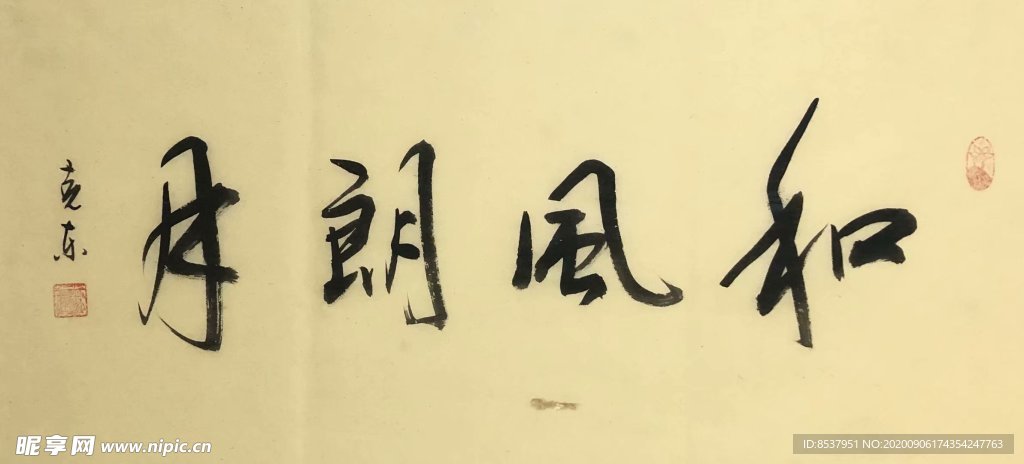 和風朗月
克东
昵享网 www.nipic.cn
ID:8537951 NO:20200906174354247763